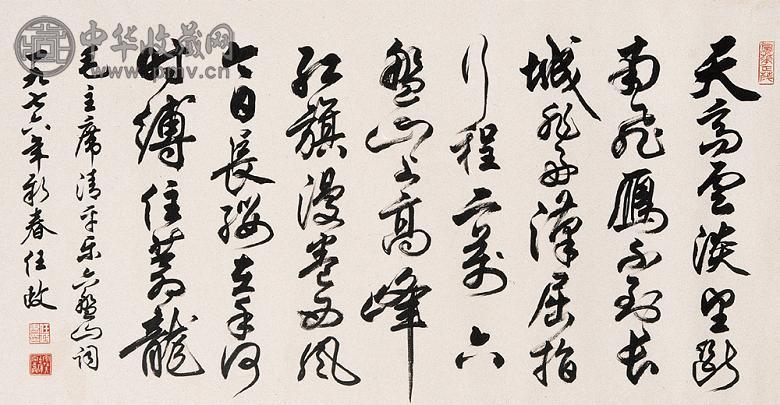 天高雲淡望断
南飛鴈不到长
城非好漢屈指
行程二萬六
盤山上高峰
红旗漫卷西风
今日長缨在手何
时縛住苍龍
毛主席清平乐六盘山词
一九七六年新春任政
中华收藏网